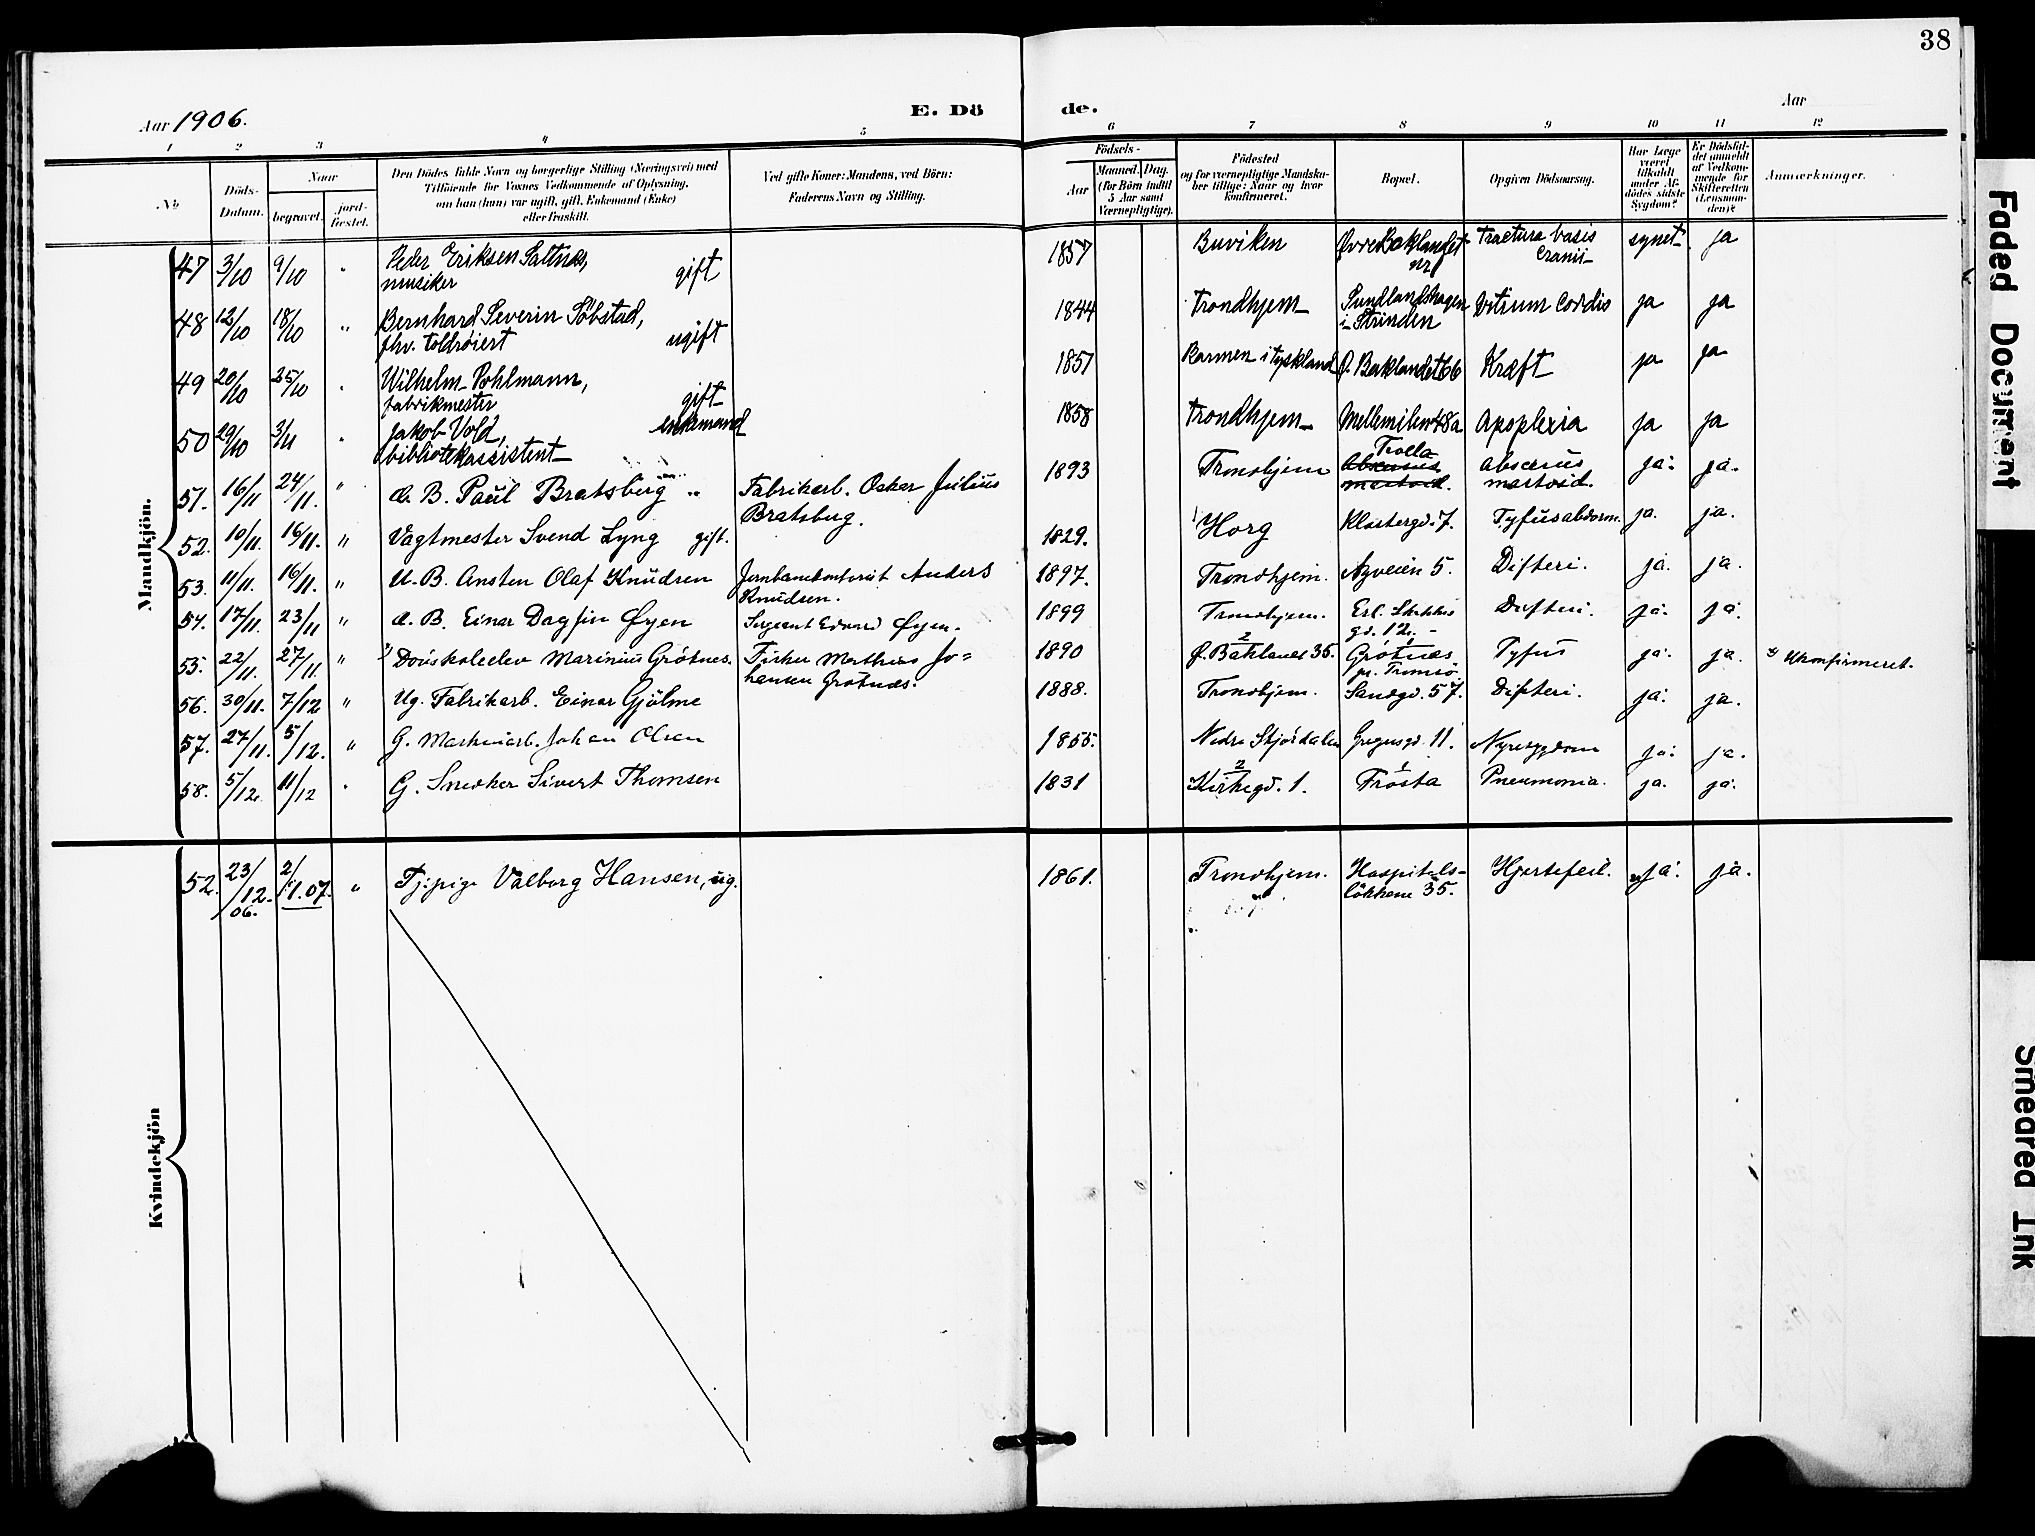 38
Aar 1906.
E. Dö de.
Aar
1 2 3 4 5 6 7 8 9 10 11 12
No
Döds-Datum.
Naar
begravet.
jord-fæstet.
Den Dödes fulde Navn og borgerlige Stilling (Næringsvei) med
Tilföiende for Voxnes Vedkommende af Oplysning,
om han (hun) var ugift, gift, Enkemand (Enke)
eller fraskilt.
Ved gifte Koner: Mandens, ved Börn:
Faderens Navn og Stilling.
Födsels-
Aar
Maaned. Dag.
(for Börn indtil
5 Aar samt
Værnepligtige).
Födested
og for værnepligtige Mandska-
ber tillige: Naar og hvor
konfirmeret.
Bopæl.
Opgiven Dödsaarsag.
Har Læge
været
tilkaldt
under Af-
dödes sidste
Sygdom?
Er Dödsfal-
det anmeldt
af Vedkom-
mende for
Skifteretten
(Lensman-
den)?
Anmærkninger.
Mandkjön.
47 3/10 9/10 " Peder Eriksen Saltnes, musiker gift 1857 Buviken Øvre Baklandet nr 1 Fractura basis cranii synet ja
48 12/10 18/10 " Bernhard Severin Söbstad, fhv. toldrøiert ugift 1844 Trondhjem Sundlandshagen i Strinden Vitium Cordis ja ja
49 20/10 25/10 " Wilhelm Pohlmann, fabrikmester gift 1851 Barmen i Tyskland Ø. Baklandet 66 Kræft ja ja
50 29/10 3/11 " Jakob Vold, bibliotekassistent enkemand 1858 Trondhjem Mellemilen 48a Apoplexia ja ja
51. 16/11 24/11. " u. B. Paul Bratsberg " Fabrikarb. Oskar Julius Bratsberg. 1893 Trondhjem Trolla Abscessus mastoid. ja. ja.
52. 10/11. 16/11. " Vagtmester Svend Lyng gift. 1829. Horg Klostergd. 7. Tyfus abdom. ja. ja.
53. 11/11. 16/11. " U. B. Ansten Olaf Knudsen Jernbanekontorist Anders Knudsen. 1897. Trondhjem. Nyveien 5. Difteri. ja. ja.
54. 17/11. 23/11 " u. B. Einar Dagfin Øyen Sergeant Edvard Øyen. 1899 Trondhjem. Erl. Skakkes gd. 12. Difteri. ja. ja.
55. 22/11. 27/11. " Døvskoleelev Marinius Grötnes. Fisker Mathias Johansen Grötnæs. 1890 2 Ø. Baklandet 36. 1 Grötnæs pr. Tromsö. Tyfus ja. ja. Ukonfirmeret.
56. 30/11. 7/12 " Ug. Fabrikarb. Einar Gjölme 1888. Trondhjem. Sandgd. 57. Difteri. ja. ja.
57. 27/11. 5/12. " G. Maskinarb. Johan Olsen 1855. Nedre Stjördalen Gregusgd. 11. Nyresygdom ja. ja.
58. 5/12. 11/12 " G. Snedker Sivert Thomsen 1831 2 Kirkegd. 1. 1 Frosta Pneumonia. ja. ja.
Kvindekjön
52. 23/12. 06. 2/1. 07. " Tj.pige Valborg Hansen, ug. 1861. Trondhjem. Hospitals-lökkene 35. Hjertefeil. ja. ja.
Faded Document
Smeared Ink